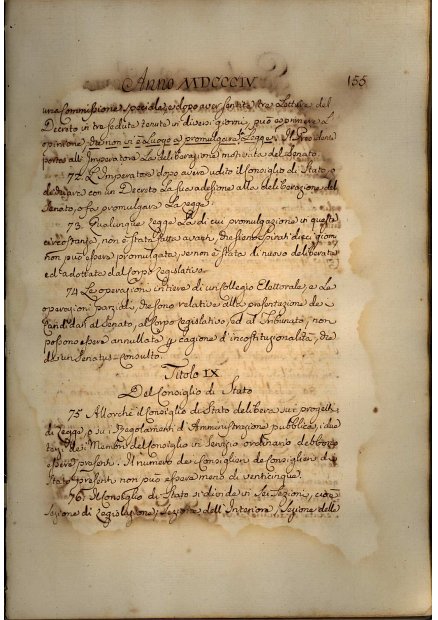 Anno MDCCCIV 155
una Commissione speciale, e dopo aver sentita tre Letture del
Decreto in tre sedute tenute in diversi giorni, può esprimere l'
opinione, che non vi è luogo a promulgare la Legge. Il Presidente
porta all'Imperatore la deliberazione motivata del Senato.
72. L'Imperatore dopo avere udito il Consiglio di Stato, o
dichiara con un Decreto la sua adesione alla deliberazione del
Senato, o fa promulgare la legge.
73. Qualunque Legge la di cui promulgazione in questa
circostanza, non è stata fatta avanti, che sieno spirati dieci giorni
non può essere promulgata, se non è stata di nuovo deliberata
ed adottata dal Corpo legislativo.
74 Le operazioni intiere di un Collegio Elettorale, e le
operazioni parziali, che sono relative alla presentazione de
Candidati al Senato, al Corpo legislativo, ed al Tribunato, non
possono essere annullate p cagione d'incostituzionalità, che
da un Senatus-Consulto.
Titolo IX
Del Consiglio di Stato
75 Allorche il Consiglio di Stato delibera sui progetti
di Legge, o sui Regolamenti d'Amministrazione pubblica, i due
terzi dei Membri del Consiglio in servizio ordinario debbono
essere presenti. Il numero dei Consiglieri de Consiglieri di
Stato presenti non può essere meno di venticinque.
76. Il Consiglio di Stato si divide in sei Sezioni, cioè
Sezione di Legislazione, Sezione dell'Interiore, Sezione delle